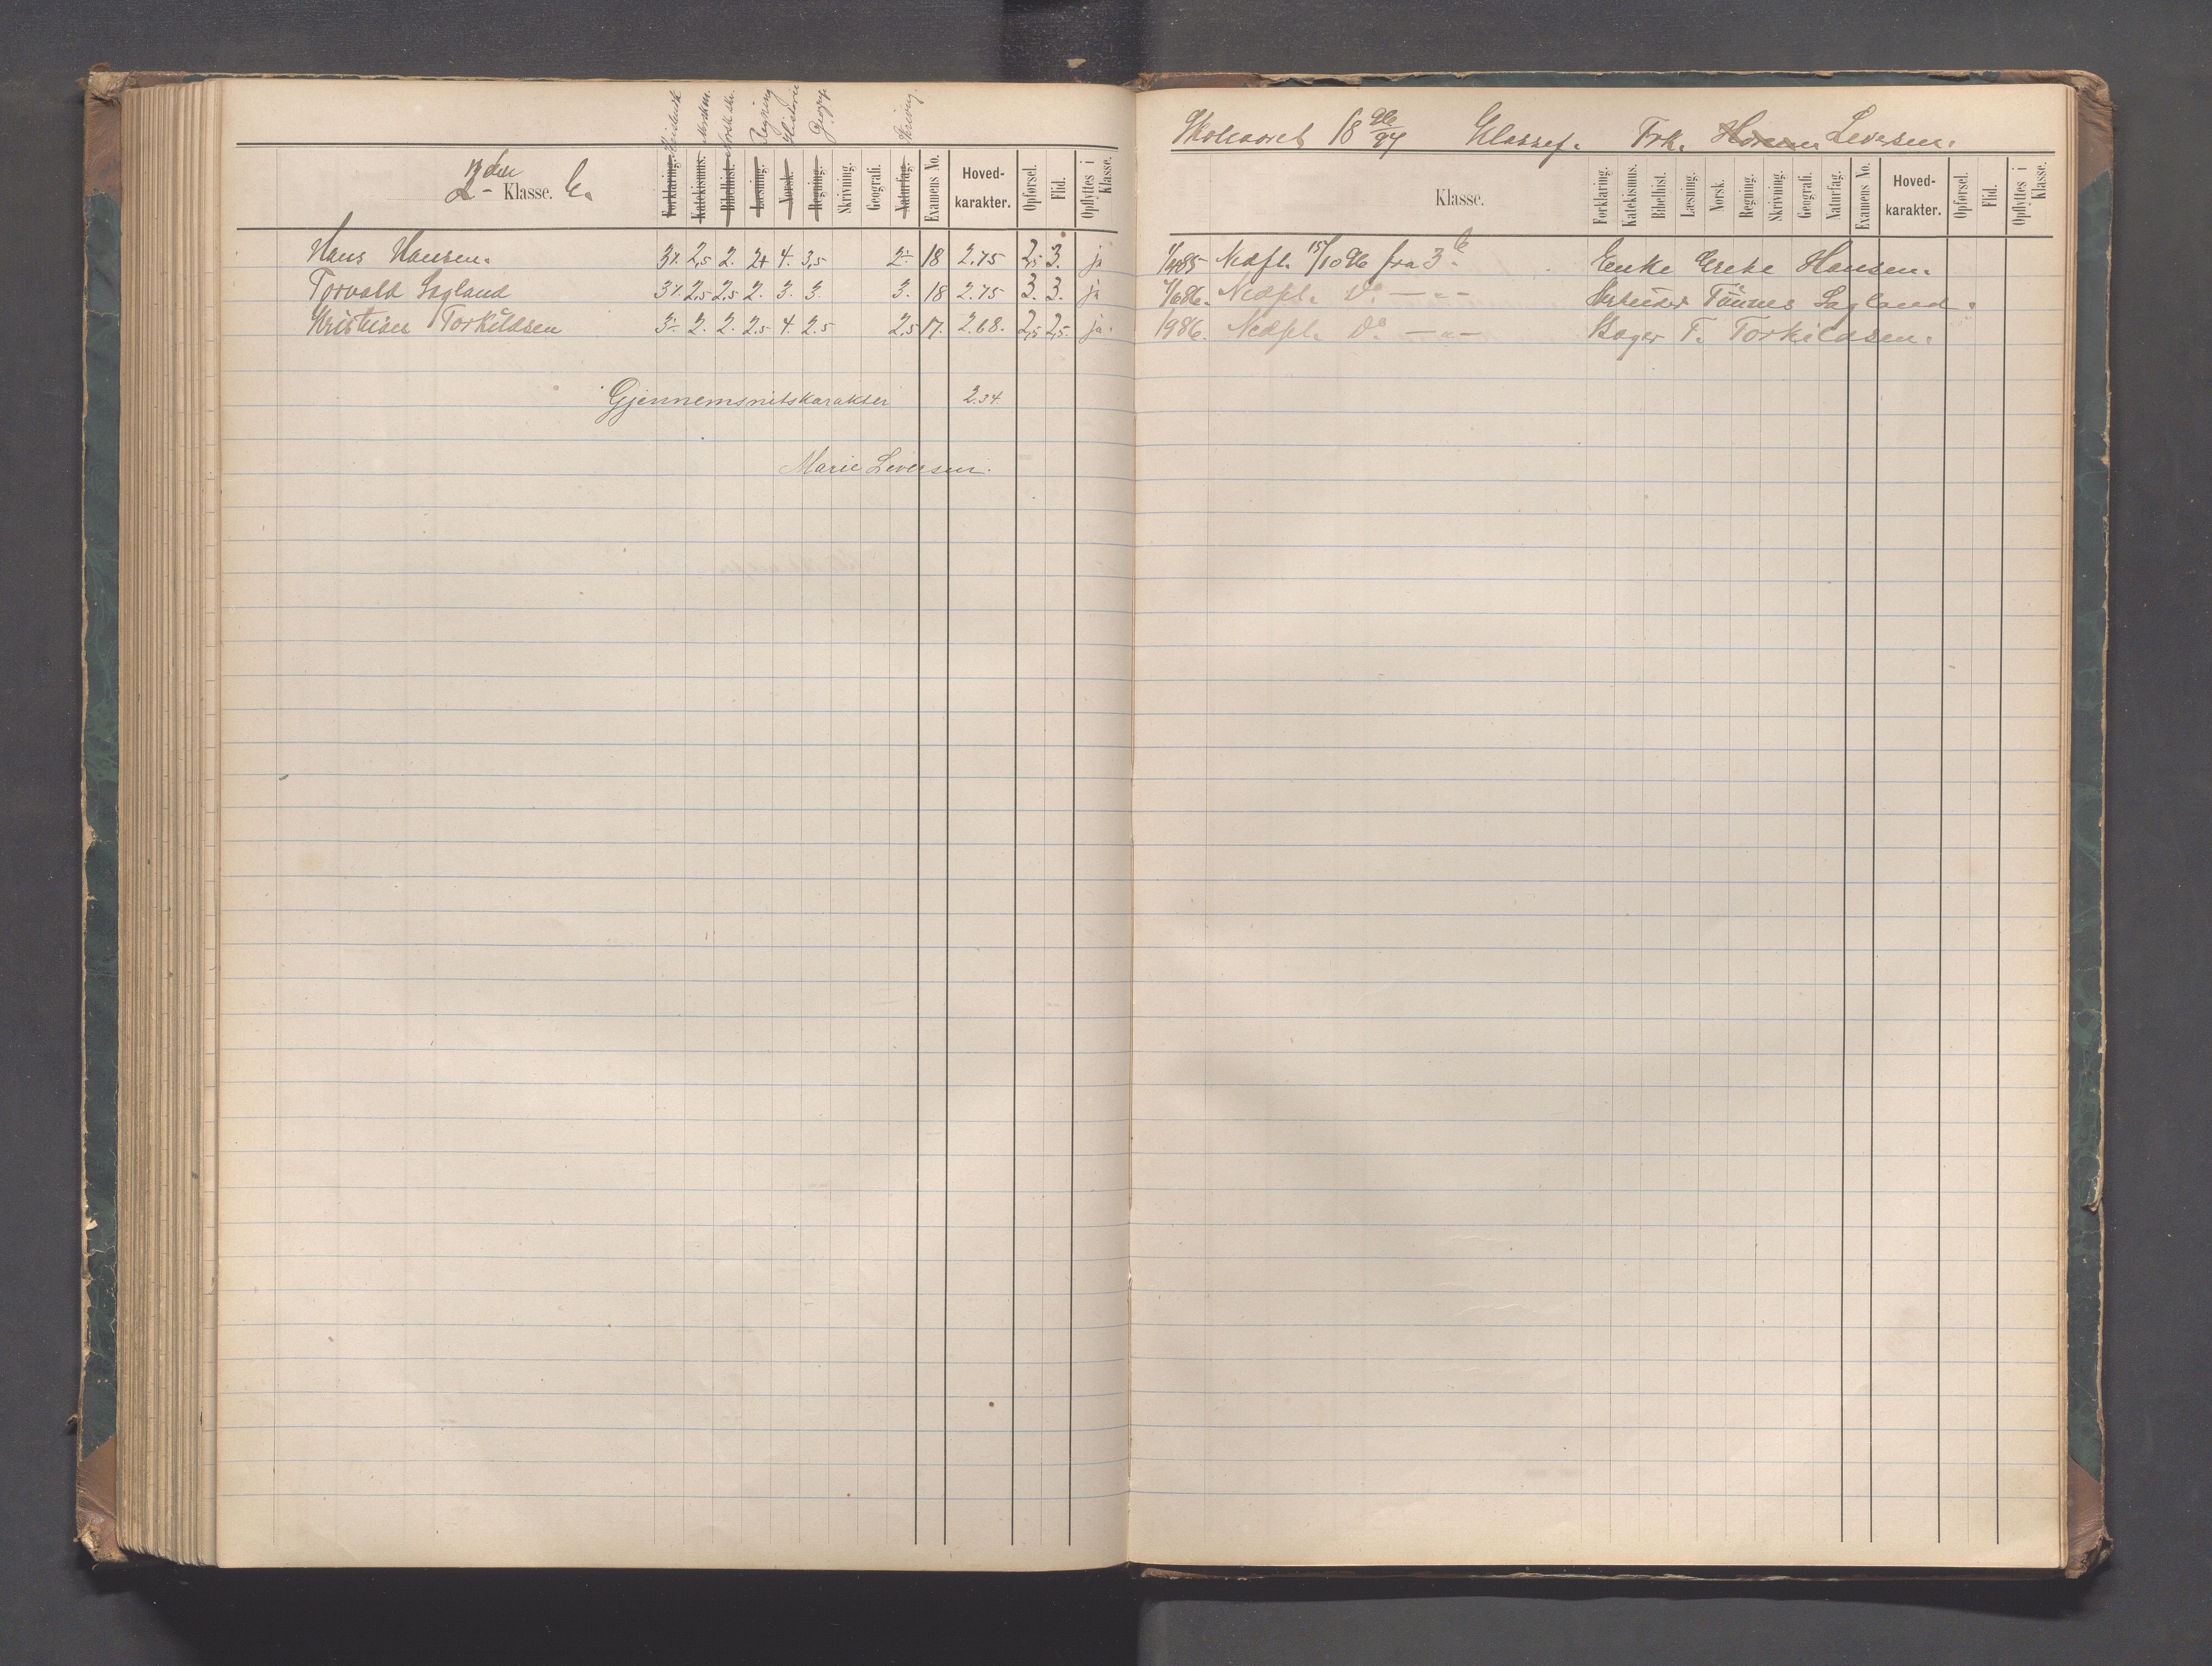 Kristendk Norsk m. Norsk skr. Regning Historie Geogr. Skrivning.
2den Klasse. C.
Forklaring. Katekismus. Bibelhist. Læsning. Norsk. Regning. Skrivning. Geografi. Naturfag. Examens No. Hoved-karakter. Opførsel. Flid. Opflyttes i Klasse.
Hans Hansen. 2,5 2. 2+ 4. 3,5 2÷ 18 2.75 2,5 3. ja
Torvald Sagland 2,5 2,5 2. 3. 3. 3. 18 2.75 3. 3. ja
Kristian Torkildsen 3÷ 2. 2. 2.5 4. 2.5 2,5 17. 2.68. 2,5 2,5. ja.
Gjennemsnitskarakter 2.34.
Marie Leversen.
Skoleaaret 18 96/97 Klassef. Frk. Leversen.
Klasse.
Forklaring. Katekismus. Bibelhist. Læsning. Norsk. Regning. Skrivning. Geografi. Naturfag. Examens No. Hoved-karakter. Opførsel. Flid. Opflyttes i Klasse.
1/485 Nedfl. 15/10 96 fra 3c. Enke Grete Hansen.
7/686. Nedfl. Do. — " — Arbeider Tønnes Sagland.
1986. Nedfl. Do. — " — Bager T. Torkildsen.